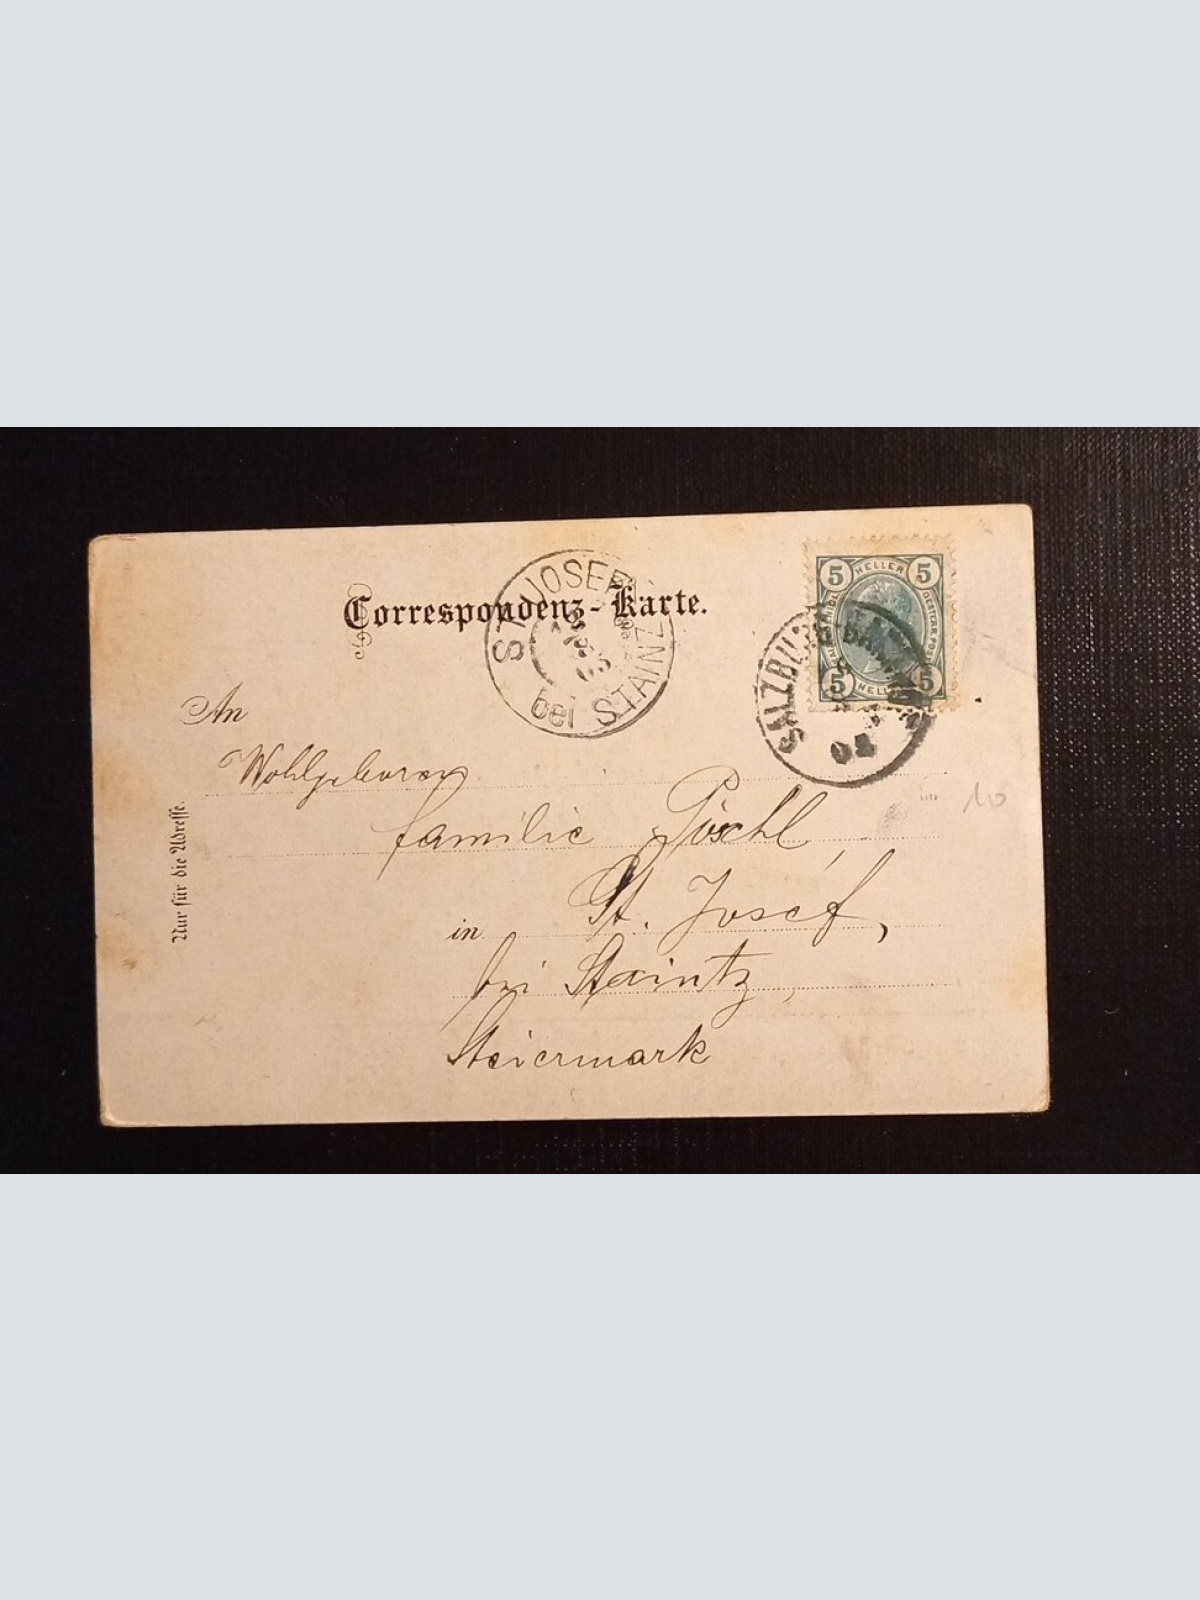 Correspondenz-Karte.
ST. JOSEF
bei STAINZ
5 HELLER 5
OESTERR. POST
5 5
SALZBURG
An
Wohlgeboren
Familie Pöschl,
in St. Josef,
bei Staintz,
Steiermark
Nur für die Adresse.
10